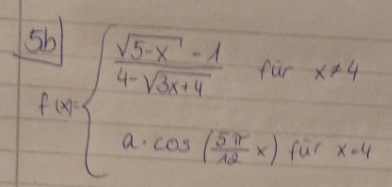 5b)
√5-x - 1
4-√3x+4 für x≠4
f(x)=
a·cos (5π/12 x) für x=4